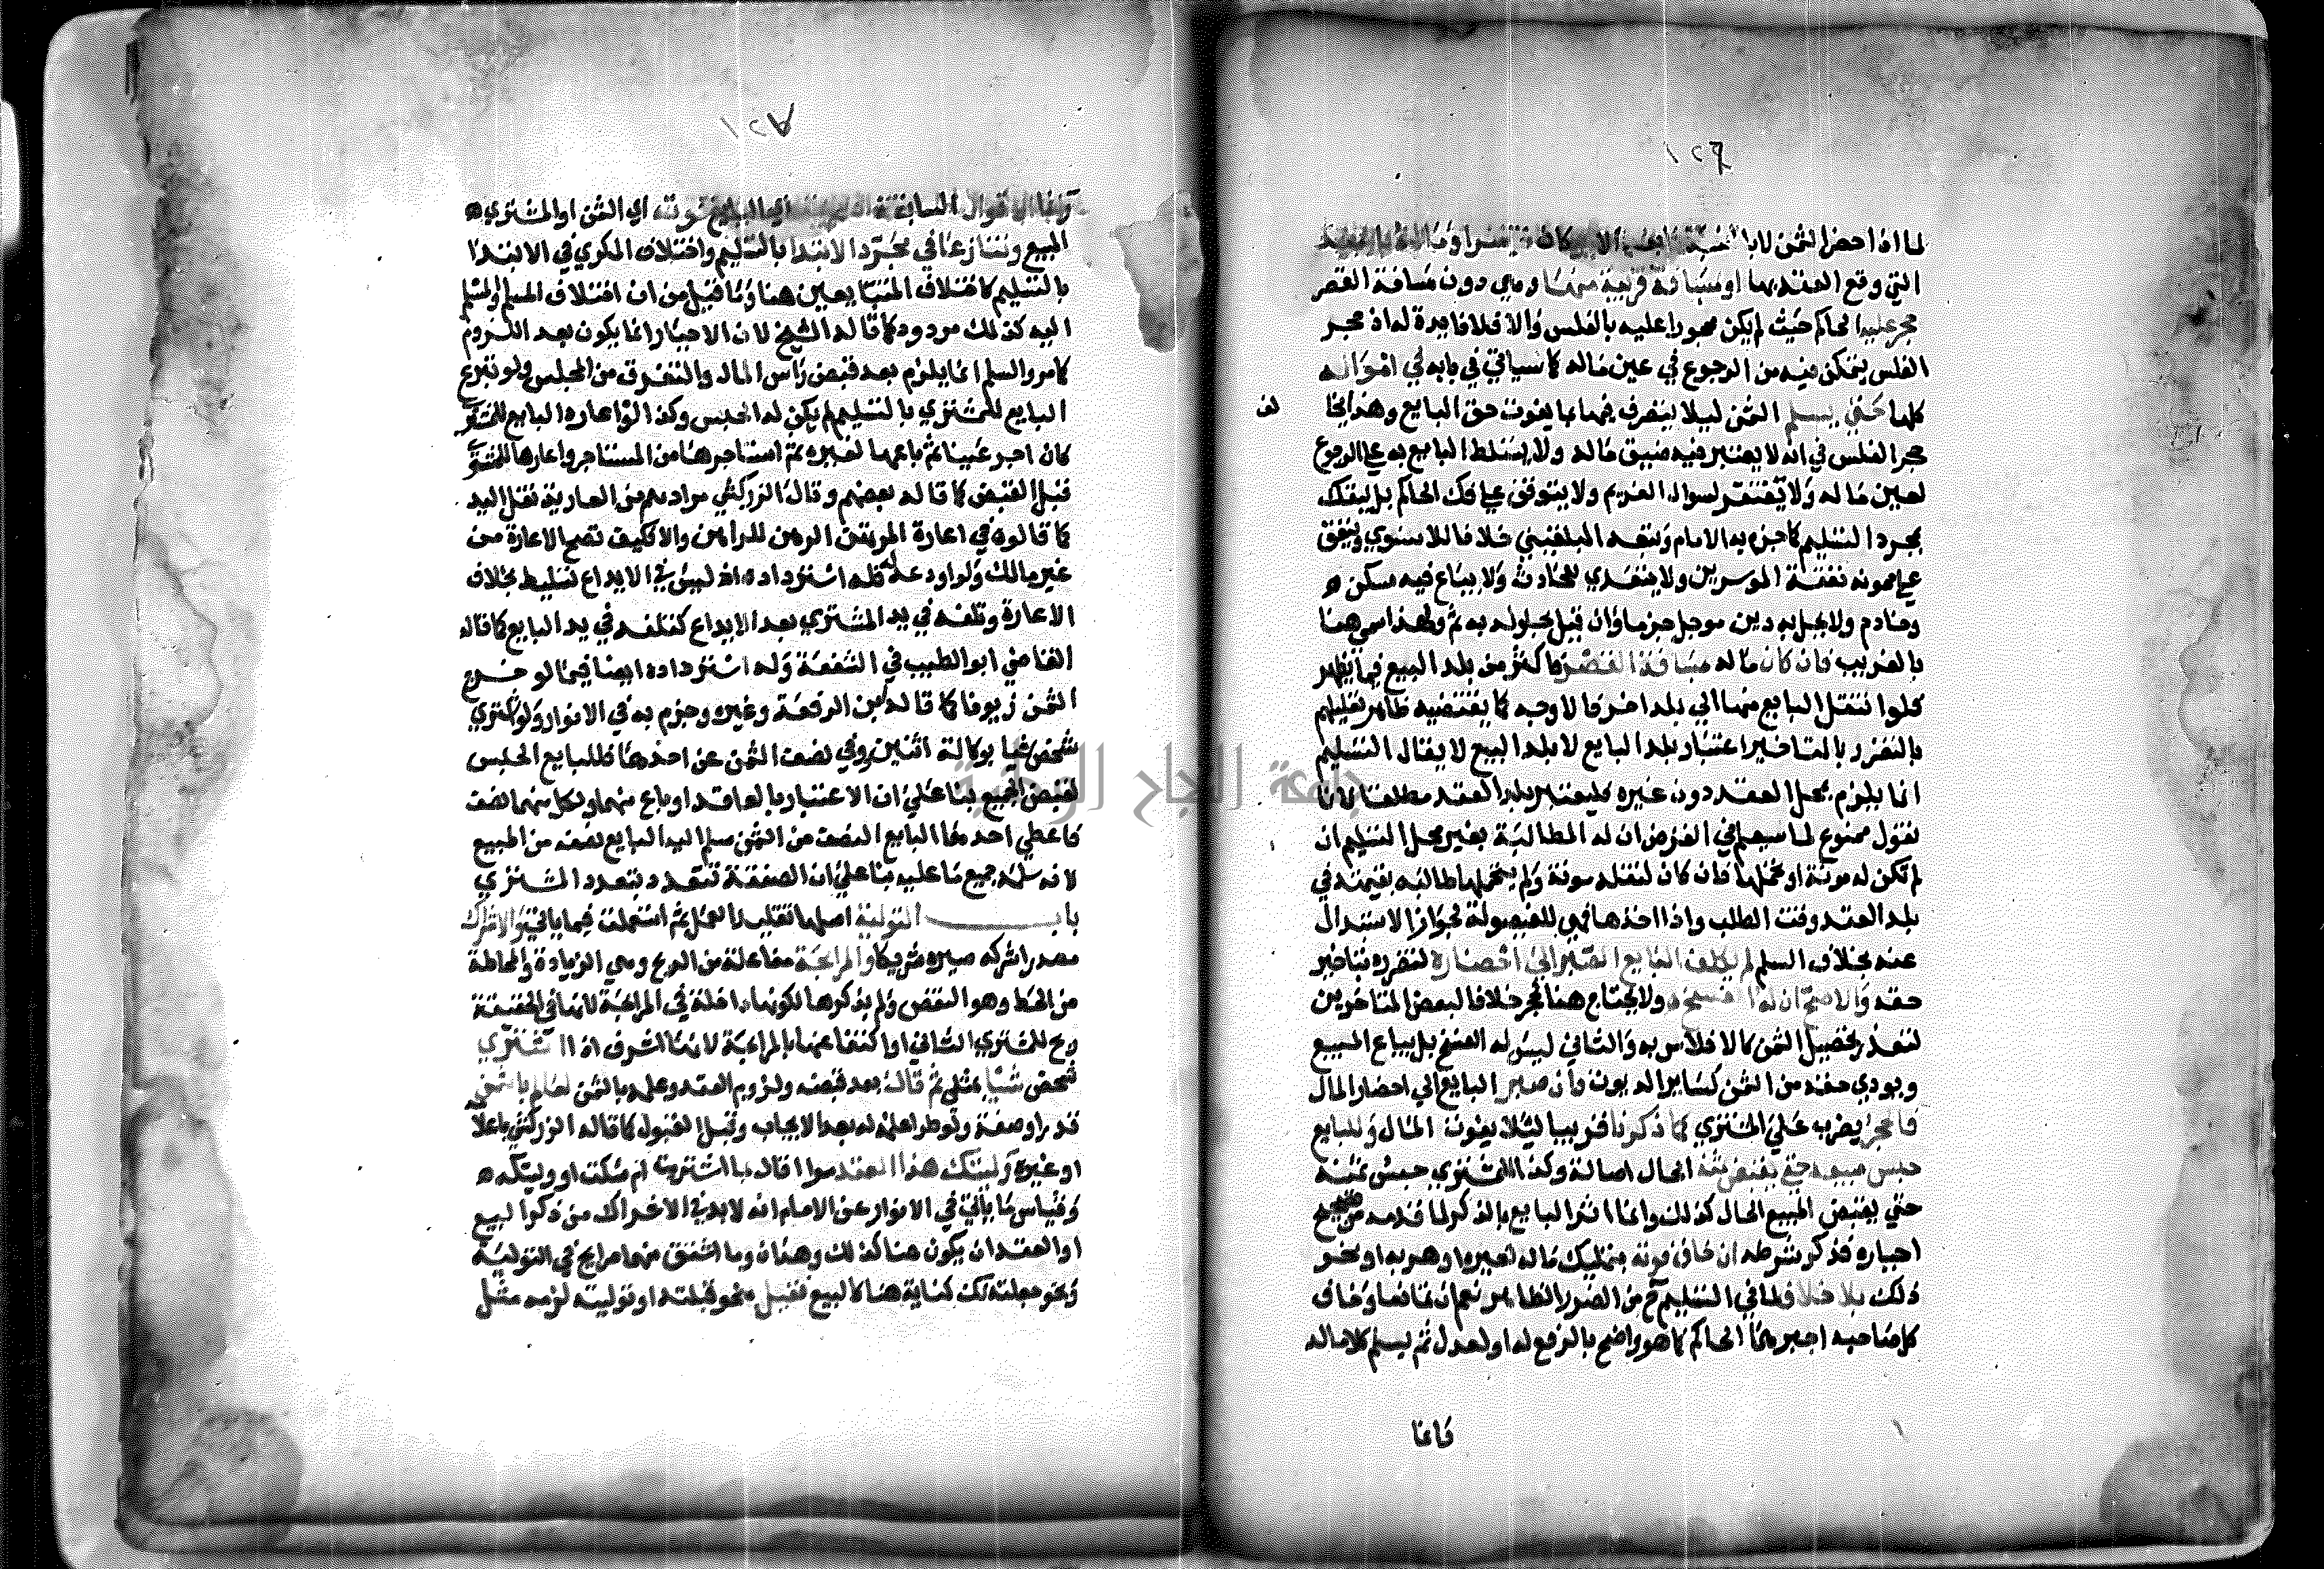 ١٢٦
لما اذا احضر الثمن لا با
التي وقع العقد بها او مسافة قريبة منها وهي دون مسافة القصر
حجر عليه الحاكم حيث لم يكن محجورا عليه بالفلس والا فلا فايدة له اذ حجر
الفلس يتمكن فيه من الرجوع في عين ماله كما سياتي في بابه في امواله
كلها حتي يسلم الثمن ليلا يتصرف فيها بما يفوت حق البايع وهذا يخا
لف
حجر الفلس في انه لا يعتبر فيه ضيق ماله ولا يتسلط البايع به علي الرجوع
لعين ماله ولا يفتقر لسوال الغريم ولا يتوقف علي فك الحاكم بل ينفك
بمجرد التسليم كما جزم به الامام وتبعه البلقيني خلافا للاسنوي وينفق
علي ممونه نفقة الموسرين ولا يتعدي للحادث ولا يباع فيه مسكن
وخادم ولا يحل به دين موجل جزما وان قيل بحلوله به ثم ولهذا سمي هنا
بالغريب فان كان ماله مسافة القصر فاكثر من بلد البيع فيما يظهر
كلوا نتقل البايع منها الي بلد اخر فالاوجه كما يقتضيه ظاهر تعليلهم
بالتضرر بالتاخير اعتبار بلد البايع لا بلد البيع لا يقال التسليم
انما يلزم بمحل العقد دون غيره فليعتبر بلد العقد مطلقا لانا
نقول ممنوع لما سيعلم في القرض ان له المطالبة بغير محل التسليم ان
لم تكن له مونة او تحملها فان كان لنقله مونة ولم يتحملها طالبه بقيمته في
بلد العقد وقت الطلب واذا اخذها فهي للفيصولة لجواز الاستبدال
عنه بخلاف السلم لم يكلف البايع الصبر الي احضاره لتضرره بتاخير
حقه والاصح ان له الفسخ ولا يحتاج هنا لحجر خلافا لبعض المتاخرين
لتعذر تحصيل الثمن كالافلاس به والثاني ليس له الفسخ بل يباع المبيع
ويودي حقه من الثمن كساير الديون وان صبر البايع الي احضار المال
فالحجر يضرب علي المشتري كما ذكرنا قريبا ليلا يفوت المال وللبايع
حبس مبيعه حتي يقبض ثمنه الحال اصالة وكذا للمشتري حبس ثمنه
حتي يقبض المبيع الحال كذلك وانما اثر البايع بالذكر لما قدمه من تصحيح
اجباره فذكر شرطه ان خاف فوته بتمليك ماله لغيره او هربه او نحو
ذلك بلا خلاف لما في التسليم ح من الضرر الظاهر نعم ان تمانعا وخاف
كل صاحبه اجبرهما الحاكم كما هو واضح بالدفع له او لعدل ثم يسلم كلا ماله
فانما
١٢٧
وانما الاقوال السابقة اي البايع فوته اي الثمن او المشتري
المبيع وتنازعا في مجرد الابتدا بالتسليم واختلاف المكري في الابتدا
بالتسليم كاختلاف المتبايعين هنا وما قيل من ان اختلاف المسلم والمسلم
اليه كذلك مردود كما قاله الشيخ لان الاجبار انما يكون بعد اللزوم
كما مر والسلم انما يلزم بعد قبض راس المال والتفرق من المجلس ولو تبرع
البايع للمشتري بالتسليم لم يكن له الحبس وكذا لو اعاره البايع للمشتري
كان اجر عينا ثم باعها لغيره ثم استاجرها من المستاجر واعارها للمشتري
قبل القبض كما قاله بعضهم وقال الزركشي مرادهم من العارية نقل اليد
كما قالوه في اعارة المرتهن الرهن للراهن والا فكيف تصح الاعارة من
غير مالك ولو اودعه له فله استرداده اذ ليس في الايداع تسليط بخلاف
الاعارة وتلفه في يد المشتري بعد الايداع كتلفه في يد البايع كما قاله
القاضي ابو الطيب في الشفعة وله استرداده ايضا فيما لو خرج
الثمن زيوفا كما قاله ابن الرفعة وغيره وجزم به في الانوار ولو اشتري
شخص شيا بوكالة اثنين ووفي نصف الثمن عن احدهما فللبايع الحبس
لقبض الجميع بنا علي ان الاعتبار بالعاقد او باع منهما ولكل منهما نصف
فاعطي احدهما البايع النصف من الثمن سلم اليه البايع نصفه من المبيع
لانه سلمه جميع ما عليه بنا علي ان الصفقة تتعدد بتعدد المشتري
باب التولية اصلها تقليد العمل ثم استعملت فيما ياتي والاشراك
مصدر اشركه صيره شريكا والمرابحة مفاعلة من الربح وهي الزيادة والمحاطة
من الحط وهو النقص ولم يذكرها لكونها داخلة في المرابحة لانها في الحقيقة
ربح للمشتري الثاني او اكتفا عنها بالمرابحة لانها اشرف اذا اشتري
شخص شيا بمثلي ثم قال بعد قبضه ولزوم العقد وعلمه بالثمن لعالم بالثمن
قدرا وصفة ولو طرا علمه له بعد الايجاب وقبل القبول كما قاله الزركشي باعلامه
او غيره وليتك هذا العقد سوا اقال بما اشتريت ام سكت او وليتكه
وقياس ما ياتي في الانوار عن الامام انه لا بد في الاشراك من ذكر البيع
او العقد ان يكون هنا كذلك وهذان وما اشتق منهما صرايح في التولية
ونحو جعلته لك كناية هنا كالبيع فقبل بنحو قبلته او توليته لزمه مثل
جامعة النجاح الوطنية